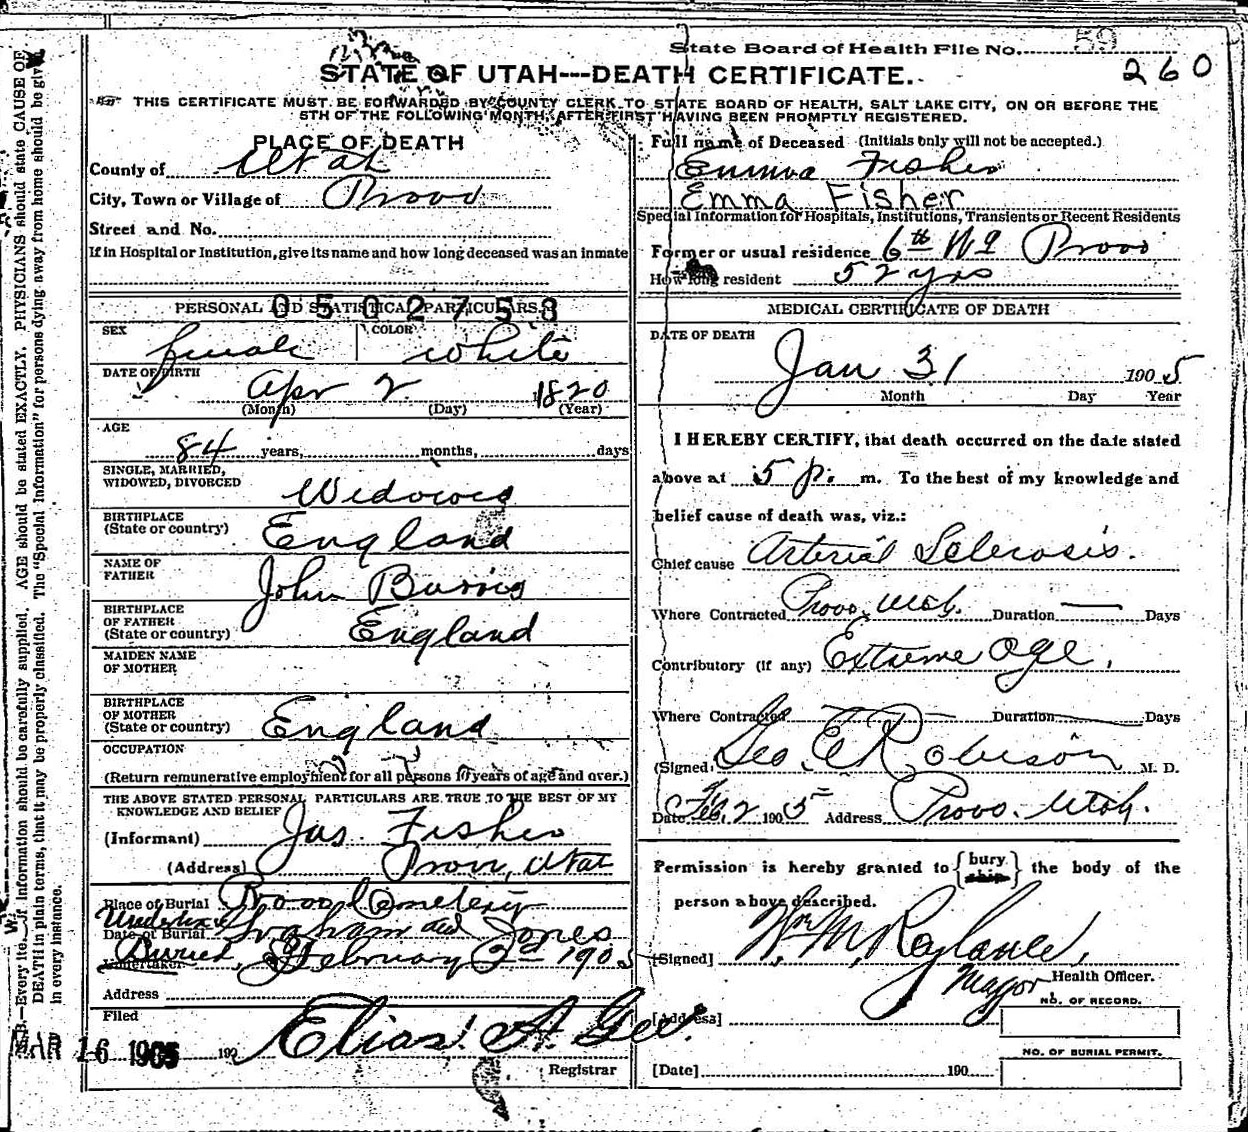 State Board of Health File No. 59
260
STATE OF UTAH---DEATH CERTIFICATE.
THIS CERTIFICATE MUST BE FORWARDED BY COUNTY CLERK TO STATE BOARD OF HEALTH, SALT LAKE CITY, ON OR BEFORE THE
5TH OF THE FOLLOWING MONTH, AFTER FIRST HAVING BEEN PROMPTLY REGISTERED.
PLACE OF DEATH
County of Utah
City, Town or Village of Provo
Street and No.
If in Hospital or Institution, give its name and how long deceased was an inmate
PERSONAL AND STATISTICAL PARTICULARS
0502753
SEX female COLOR white
DATE OF BIRTH Apr 2 1820
(Month) (Day) (Year)
AGE
84 years, months, days
SINGLE, MARRIED,
WIDOWED, DIVORCED Widowed
BIRTHPLACE
(State or country) England
NAME OF
FATHER John
BIRTHPLACE
OF FATHER
(State or country) England
MAIDEN NAME
OF MOTHER
BIRTHPLACE
OF MOTHER
(State or country) England
OCCUPATION
(Return remunerative employment for all persons 10 years of age and over.)
THE ABOVE STATED PERSONAL PARTICULARS ARE TRUE TO THE BEST OF MY
KNOWLEDGE AND BELIEF
(Informant) Jas. Fisher
(Address) Provo, Utah
Place of Burial Provo Cemetery
Undertaker Graham and Jones
Date of Burial
Buried, February 2nd 1905
Undertaker
Address
Filed
MAR 16 1905 190 Elias A. Gee.
Registrar
Full name of Deceased (Initials only will not be accepted.)
Emma Fisher
Emma Fisher
Special Information for Hospitals, Institutions, Transients or Recent Residents
Former or usual residence 6th Wd Provo
How long resident 52 yrs
MEDICAL CERTIFICATE OF DEATH
DATE OF DEATH
Jan 31 1905
Month Day Year
I HEREBY CERTIFY, that death occurred on the date stated
above at 5 p. m. To the best of my knowledge and
belief cause of death was, viz.:
Chief cause Arterial Sclerosis.
Where Contracted Provo, Utah. Duration — Days
Contributory (if any) Extreme age.
Where Contracted — Duration — Days
(Signed) Geo. E. Robison M. D.
Date Feb. 2 1905 Address Provo. Utah.
Permission is hereby granted to {bury / ship} the body of the
person above described.
[Signed] Wm M, Roylance,
Mayor Health Officer.
[Address]
NO. OF RECORD.
NO. OF BURIAL PERMIT.
[Date] 190
N.B.—Every item of information should be carefully supplied. AGE should be stated EXACTLY. PHYSICIANS should state CAUSE OF
DEATH in plain terms, that it may be properly classified. The "Special Information" for persons dying away from home should be given
in every instance.